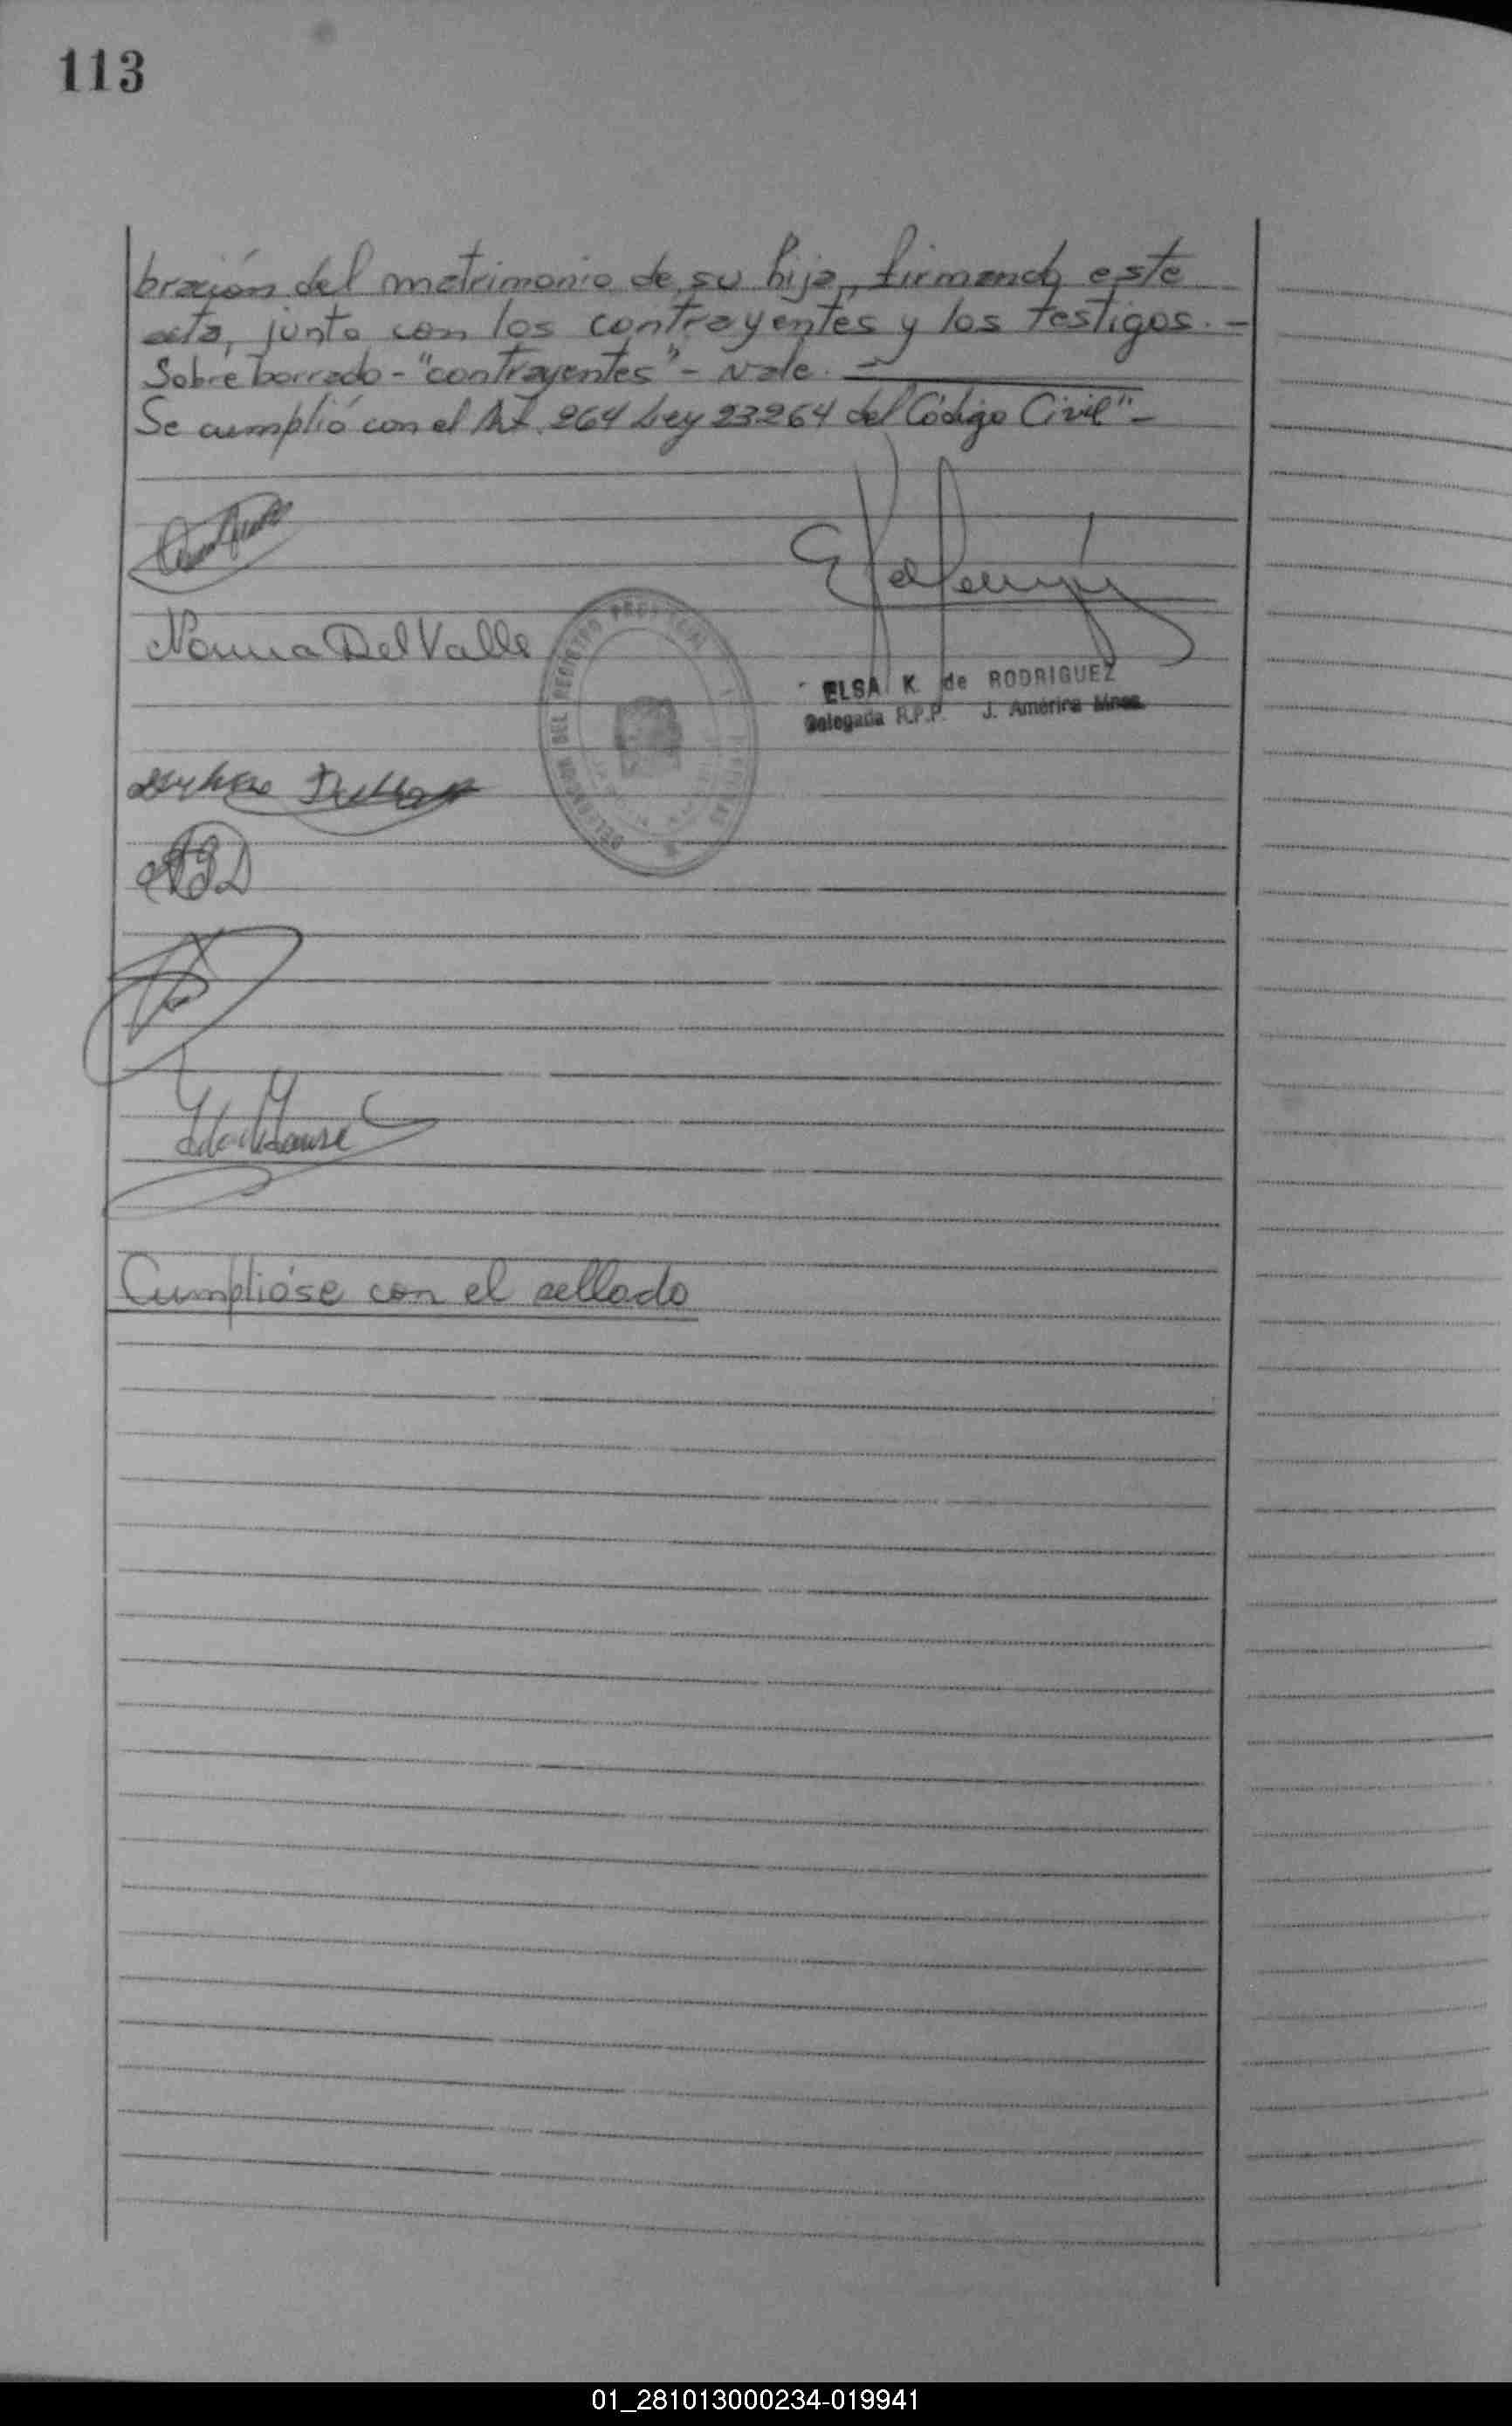 113
bración del matrimonio de su hija, firmando este
acta, junto con los contrayentes y los testigos. -
Sobre borrado - "contrayentes" - Vale. -
Se cumplió con el Art. 264 Ley 23264 del Código Civil" -
Norma Del Valle
DELEGACION DEL REGISTRO
ELSA K. de RODRIGUEZ
Delegada R.P.P. J. América Mnes.
Cumplióse con el sellado
01_281013000234-019941